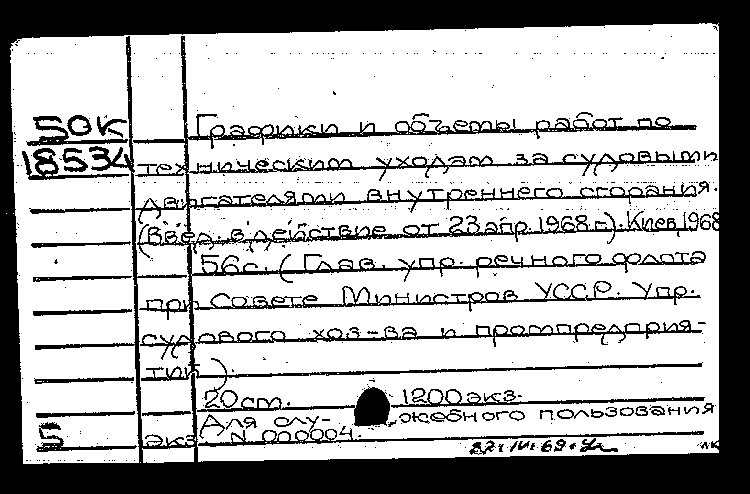 50К Графики и объемы работ по
18534 техническим уходам за судовыми
двигателями внутреннего сгорания.
(Введ. в действие от 23 апр. 1968 г.). Киев, 1968
56с. (Глав. упр. речного флота
при Совете Министров УССР. Упр.
судового хоз-ва и промпредприя-
тий).
20 cm. 1200 экз.
Для слу- жебного пользования
5 экз N 000004.